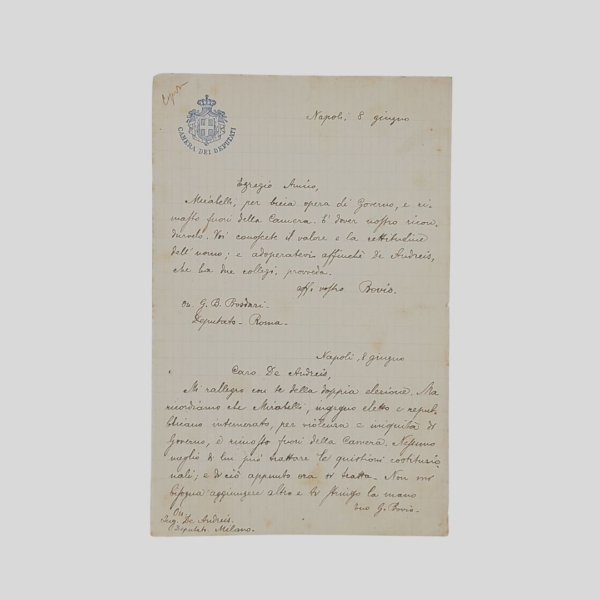 CAMERA DEI DEPUTATI
Napoli, 8 giugno
Egregio Amico,
Mirabelli, per bieca opera di Governo, è ri-
masto fuori della Camera. È dover nostro ricon-
durvelo. Voi conoscete il valore e la rettitudine
dell'uomo; e adoperatevi affinchè De Andreis,
che ha due collegi, provveda.
aff. vostro Bovio.
On. G. B.
Deputato - Roma -
Napoli, 8 giugno
Caro De Andreis,
Mi rallegro con te della doppia elezione. Ma
ricordiamo che Mirabelli, ingegno eletto e repub-
blicano intemerato, per violenza e iniquità di
Governo, è rimasto fuori della Camera. Nessuno
meglio di lui può trattare le quistioni costituzio-
nali; e di ciò appunto ora si tratta. Non mi
bisogna aggiungere altro e ti stringo la mano
tuo G. Bovio -
On.
Ing. De Andreis.
Deputato Milano.